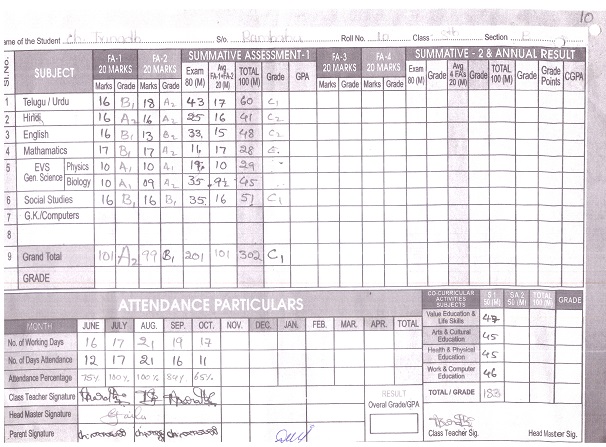 10
ame of the Student Ch. S/o. Roll No. 10 Class Section B
Sl.No. SUBJECT FA-1 20 MARKS FA-2 20 MARKS SUMMATIVE ASSESSMENT-1 FA-3 20 MARKS FA-4 20 MARKS SUMMATIVE - 2 & ANNUAL RESULT
Marks Grade Marks Grade Exam 80 (M) Avg FA-1+FA-2 20 (M) TOTAL 100 (M) Grade GPA Marks Grade Marks Grade Exam 80 (M) Grade Avg 4 FA's 20 (M) Grade TOTAL 100 (M) Grade Grade Points CGPA
1 Telugu / Urdu 16 B1 18 A2 43 17 60 C1
2 Hindi 16 A2 16 A2 25 16 41 C2
3 English 16 B1 13 B2 33 15 48 C2
4 Mathamatics 17 B1 17 A2 11 17 28
5 EVS Gen. Science Physics 10 A1 10 A1 19 10 29
Biology 10 A1 09 A2 35 9½ 45
6 Social Studies 16 B1 16 B1 35 16 51 C1
7 G.K./Computers
8
9 Grand Total 101 A2 99 B1 201 101 302 C1
GRADE
ATTENDANCE PARTICULARS
CO-CURRICULAR ACTIVITIES SUBJECTS S.1 50 (M) SA.2 50 (M) TOTAL 100 (M) GRADE
Value Education & Life Skills 47
Arts & Cultural Education 45
Health & Physical Education 45
Work & Computer Education 46
TOTAL / GRADE 183
MONTH JUNE JULY AUG. SEP. OCT. NOV. DEC. JAN. FEB. MAR. APR. TOTAL
No. of Working Days 16 17 21 19 17
No. of Days Attendance 12 17 21 16 11
Attendance Percentage 75% 100% 100% 84% 65%
Class Teacher Signature
Head Master Signature
Parent Signature
RESULT
Overal Grade/GPA
Class Teacher Sig. Head Master Sig.